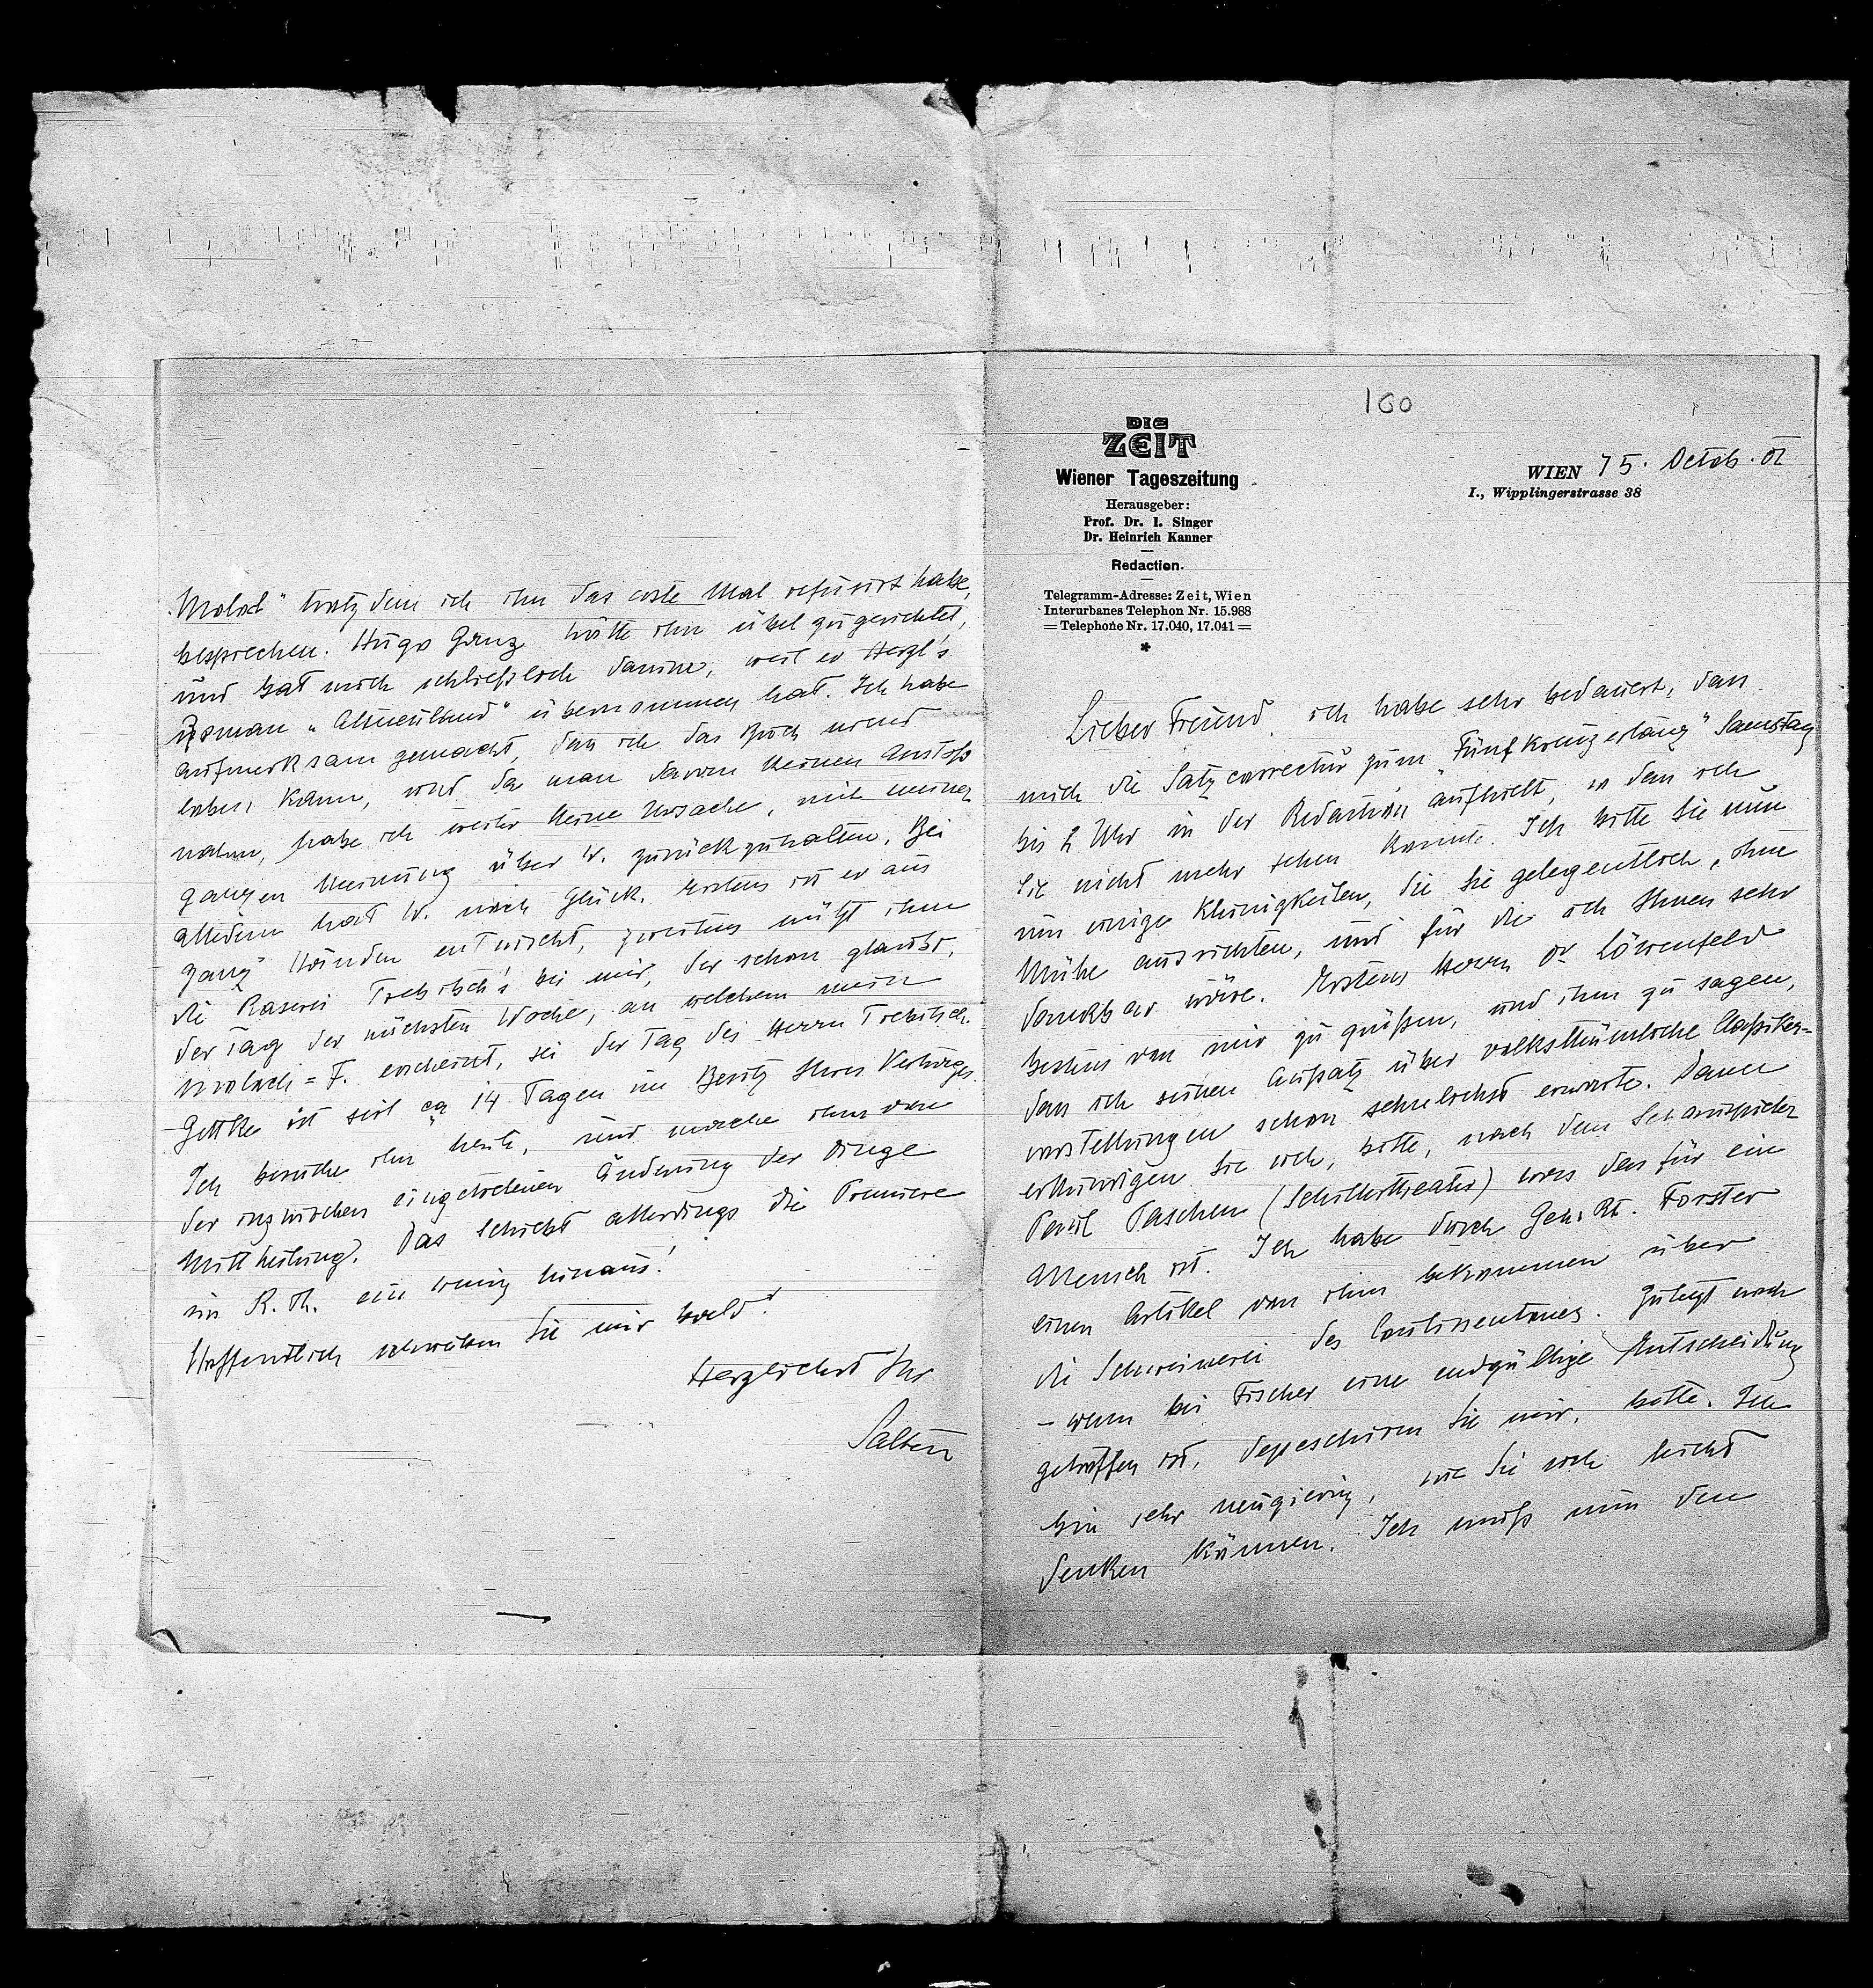 100
DIE
ZEIT
Wiener Tageszeitung
Herausgeber:
Prof. Dr. I. Singer
Dr. Heinrich Kanner
Redaction.
Telegramm-Adresse: Zeit, Wien
Interurbanes Telephon Nr. 15.988
Telephone Nr. 17.040, 17.041
*
WIEN 15. Octob. 02
I., Wipplingerstrasse 38
Lieber Freund, ich habe sehr bedauert, dass
mich die Satzcorrectur zum „Fünfkreuzertanz" Samstag
bis 2 Uhr in der Redaction aufhielt, so dass ich
Sie nicht mehr sehen konnte. Ich bitte Sie nun
um einige Kleinigkeiten, die Sie gelegentlich, ohne
Mühe ausrichten, und für die ich Ihnen sehr
dankbar wäre. Erstens Herrn Dr Löwenfeld
bestens von mir zu grüßen, und ihm zu sagen,
dass ich seinen Aufsatz über volksthümliche Classiker-
vorstellungen schon sehnlichst erwarte. Dann
erkundigen Sie sich, bitte, nach dem Schauspieler
Paul Paschen (Schillertheater) was das für ein
Mensch ist. Ich habe durch Geh. Rt. Forster
einen Artikel von ihm bekommen über
die Schweinerei des Contissentones. Zuletzt noch
– wenn bei Fischer eine endgültige Entscheidung
getroffen ist, depeschiren Sie mir, bitte. Ich
bin sehr neugierig, wie Sie sich leicht
denken können. Ich muß nun den
„Moloch" trotzdem ich ihn das erste Mal refusirt habe,
besprechen. Hugo Ganz hätte ihn übel zugerichtet,
und bat mich schließlich darum, weil er Herzl's
Roman „Altneuland" übernommen hat. Ich habe
aufmerksam gemacht, dass ich das Buch nicht
loben kann, und da man davon keinen Anstoß
nahm, habe ich weiter keine Ursache, mit meiner
ganzen Meinung über W. zurückzuhalten. Bei
alledem hat W. noch Glück. Erstens ist er aus
Ganz' Händen entwischt, zweitens nützt ihm
die Raserei Trebitsch's bei mir, der schon glaubt,
der Tag der nächsten Woche, an welchem mein
Moloch=F. erscheint, sei der Tag des Herrn Trebitsch.
Gettke ist seit ca 14 Tagen im Besitz Ihres Vertrages.
Ich besuche ihn heute, und mache ihm von
der inzwischen eingetretenen Änderung der Dinge
Mittheilung. Das schiebt allerdings die Premiere
im R. Th. ein wenig hinaus!
Hoffentlich schreiben Sie mir bald!
Herzlichst Ihr
Salten